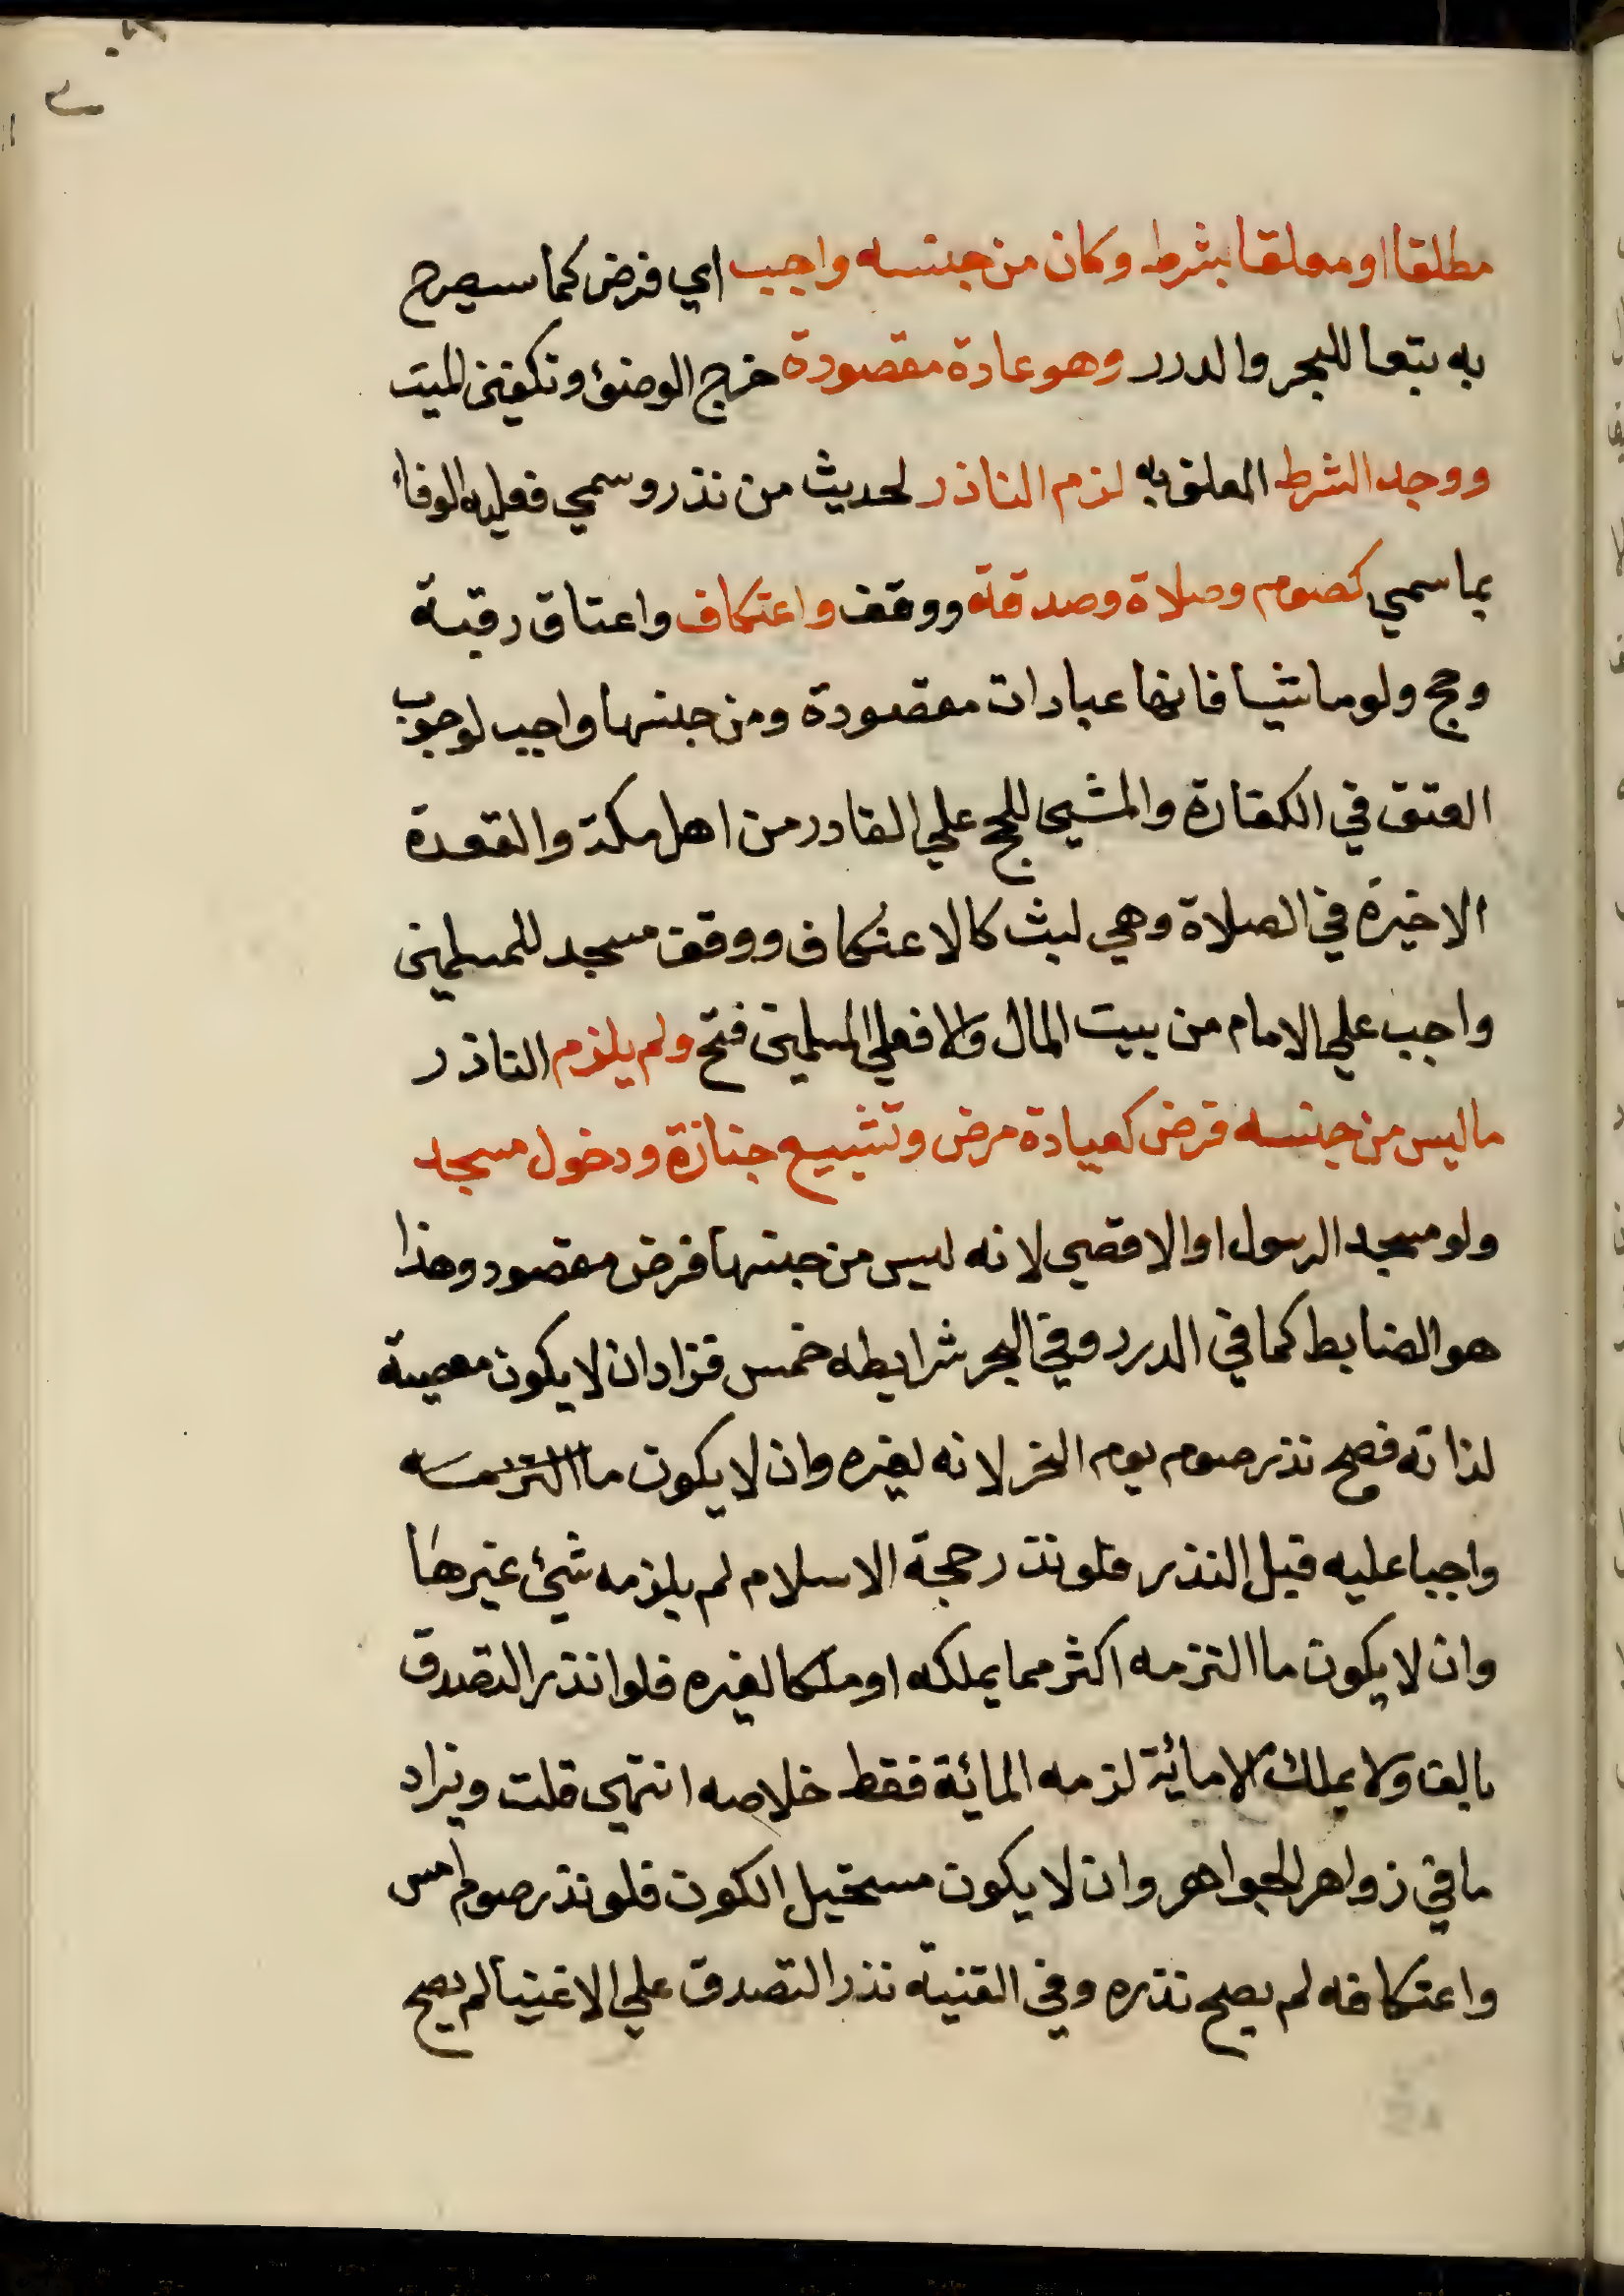 مطلقا او معلقا بشرط وكان من جنسه واجب اي فرض كما سيصرح
به بتعا للبحر والدرر وهو عادة مقصودة خرج الوضوئ وتكفين الميت
ووجد الشرط المعلق به لزم الناذر لحديث من نذر وسمي فعليه الوفاء
بما سمي كصوم وصلاة وصدقة ووقف واعتكاف واعتاق رقبة
وحج ولو ماشيا فانها عبادات مقصودة ومن جنسها واجب لوجوب
العتق في الكفارة والمشي للحج علي القادر من اهل مكة والقعدة
الاخيرة في الصلاة وهي لبث كالاعتكاف ووقف مسجد للمسلمين
واجب علي الامام من بيت المال والا فعلي المسلمين فتح ولم يلزم الناذر
ما ليس من جنسه فرض كعيادة مرض وتشييع جنازة ودخول مسجد
ولو مسجد الرسول او الاقصي لانه ليس من جنسها فرض مقصود وهذا
هو الضابط كما في الدرر وفي البحر شرايطه خمس فزاد ان لا يكون معصية
لذاته فصح نذر صوم يوم النحر لانه لغيره وان لا يكون ما التزمه
واجبا عليه قبل النذر فلو نذر حجة الاسلام لم يلزمه شئ غيرها
وان لا يكون ما التزمه اكثر مما يملكه او ملكا لغيره فلو انذر التصدق
بالف ولا يملك الا مائة لزمه المائة فقط خلاصه انتهي قلت ويزاد
ما في زواهر الجواهر وان لا يكون مستحيل الكون فلو نذر صوم امس
واعتكافه لم يصح نذره وفي القنية نذر التصدق علي الاغنيا لم يصح